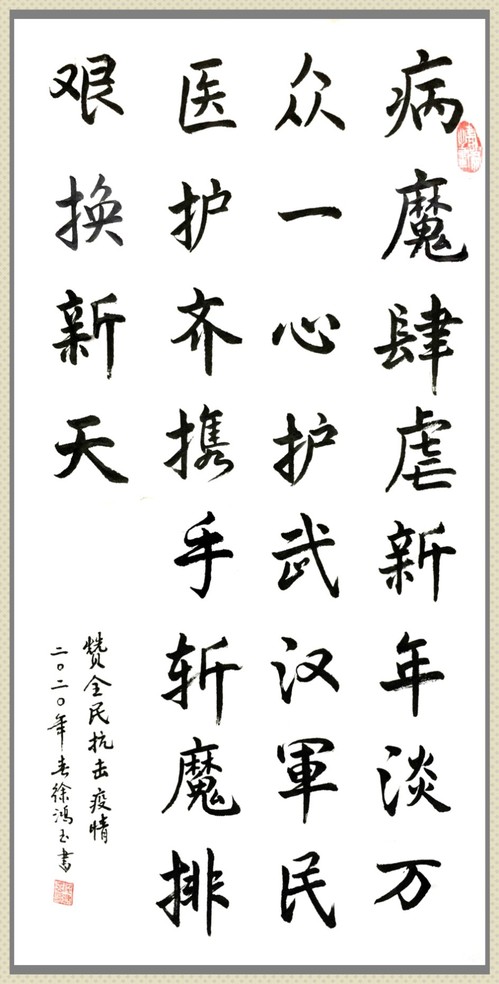 病魔肆虐新年淡万
众一心护武汉軍民
医护齐携手斩魔排
艰换新天
赞全民抗击疫情
二〇二〇年春徐鴻玉書